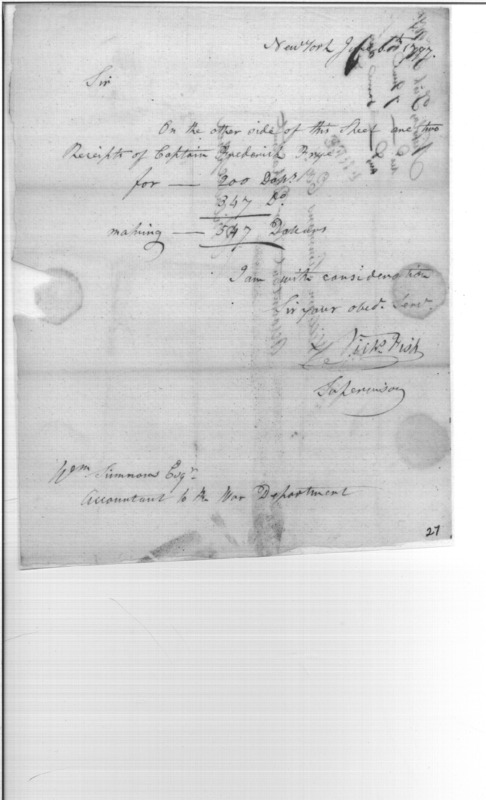 New York 1797.
Sir
On the other side of this Sheet are two
Receipts of Captain Frederick Frye
for — 200 Dolrs
347 Do.
making — 547 Dollars
I am with consideration
Sir your obedt. Servt.
Nichs Fish
Supervisor
Wm Simmons Esqr.
Accountant to the War Department
27